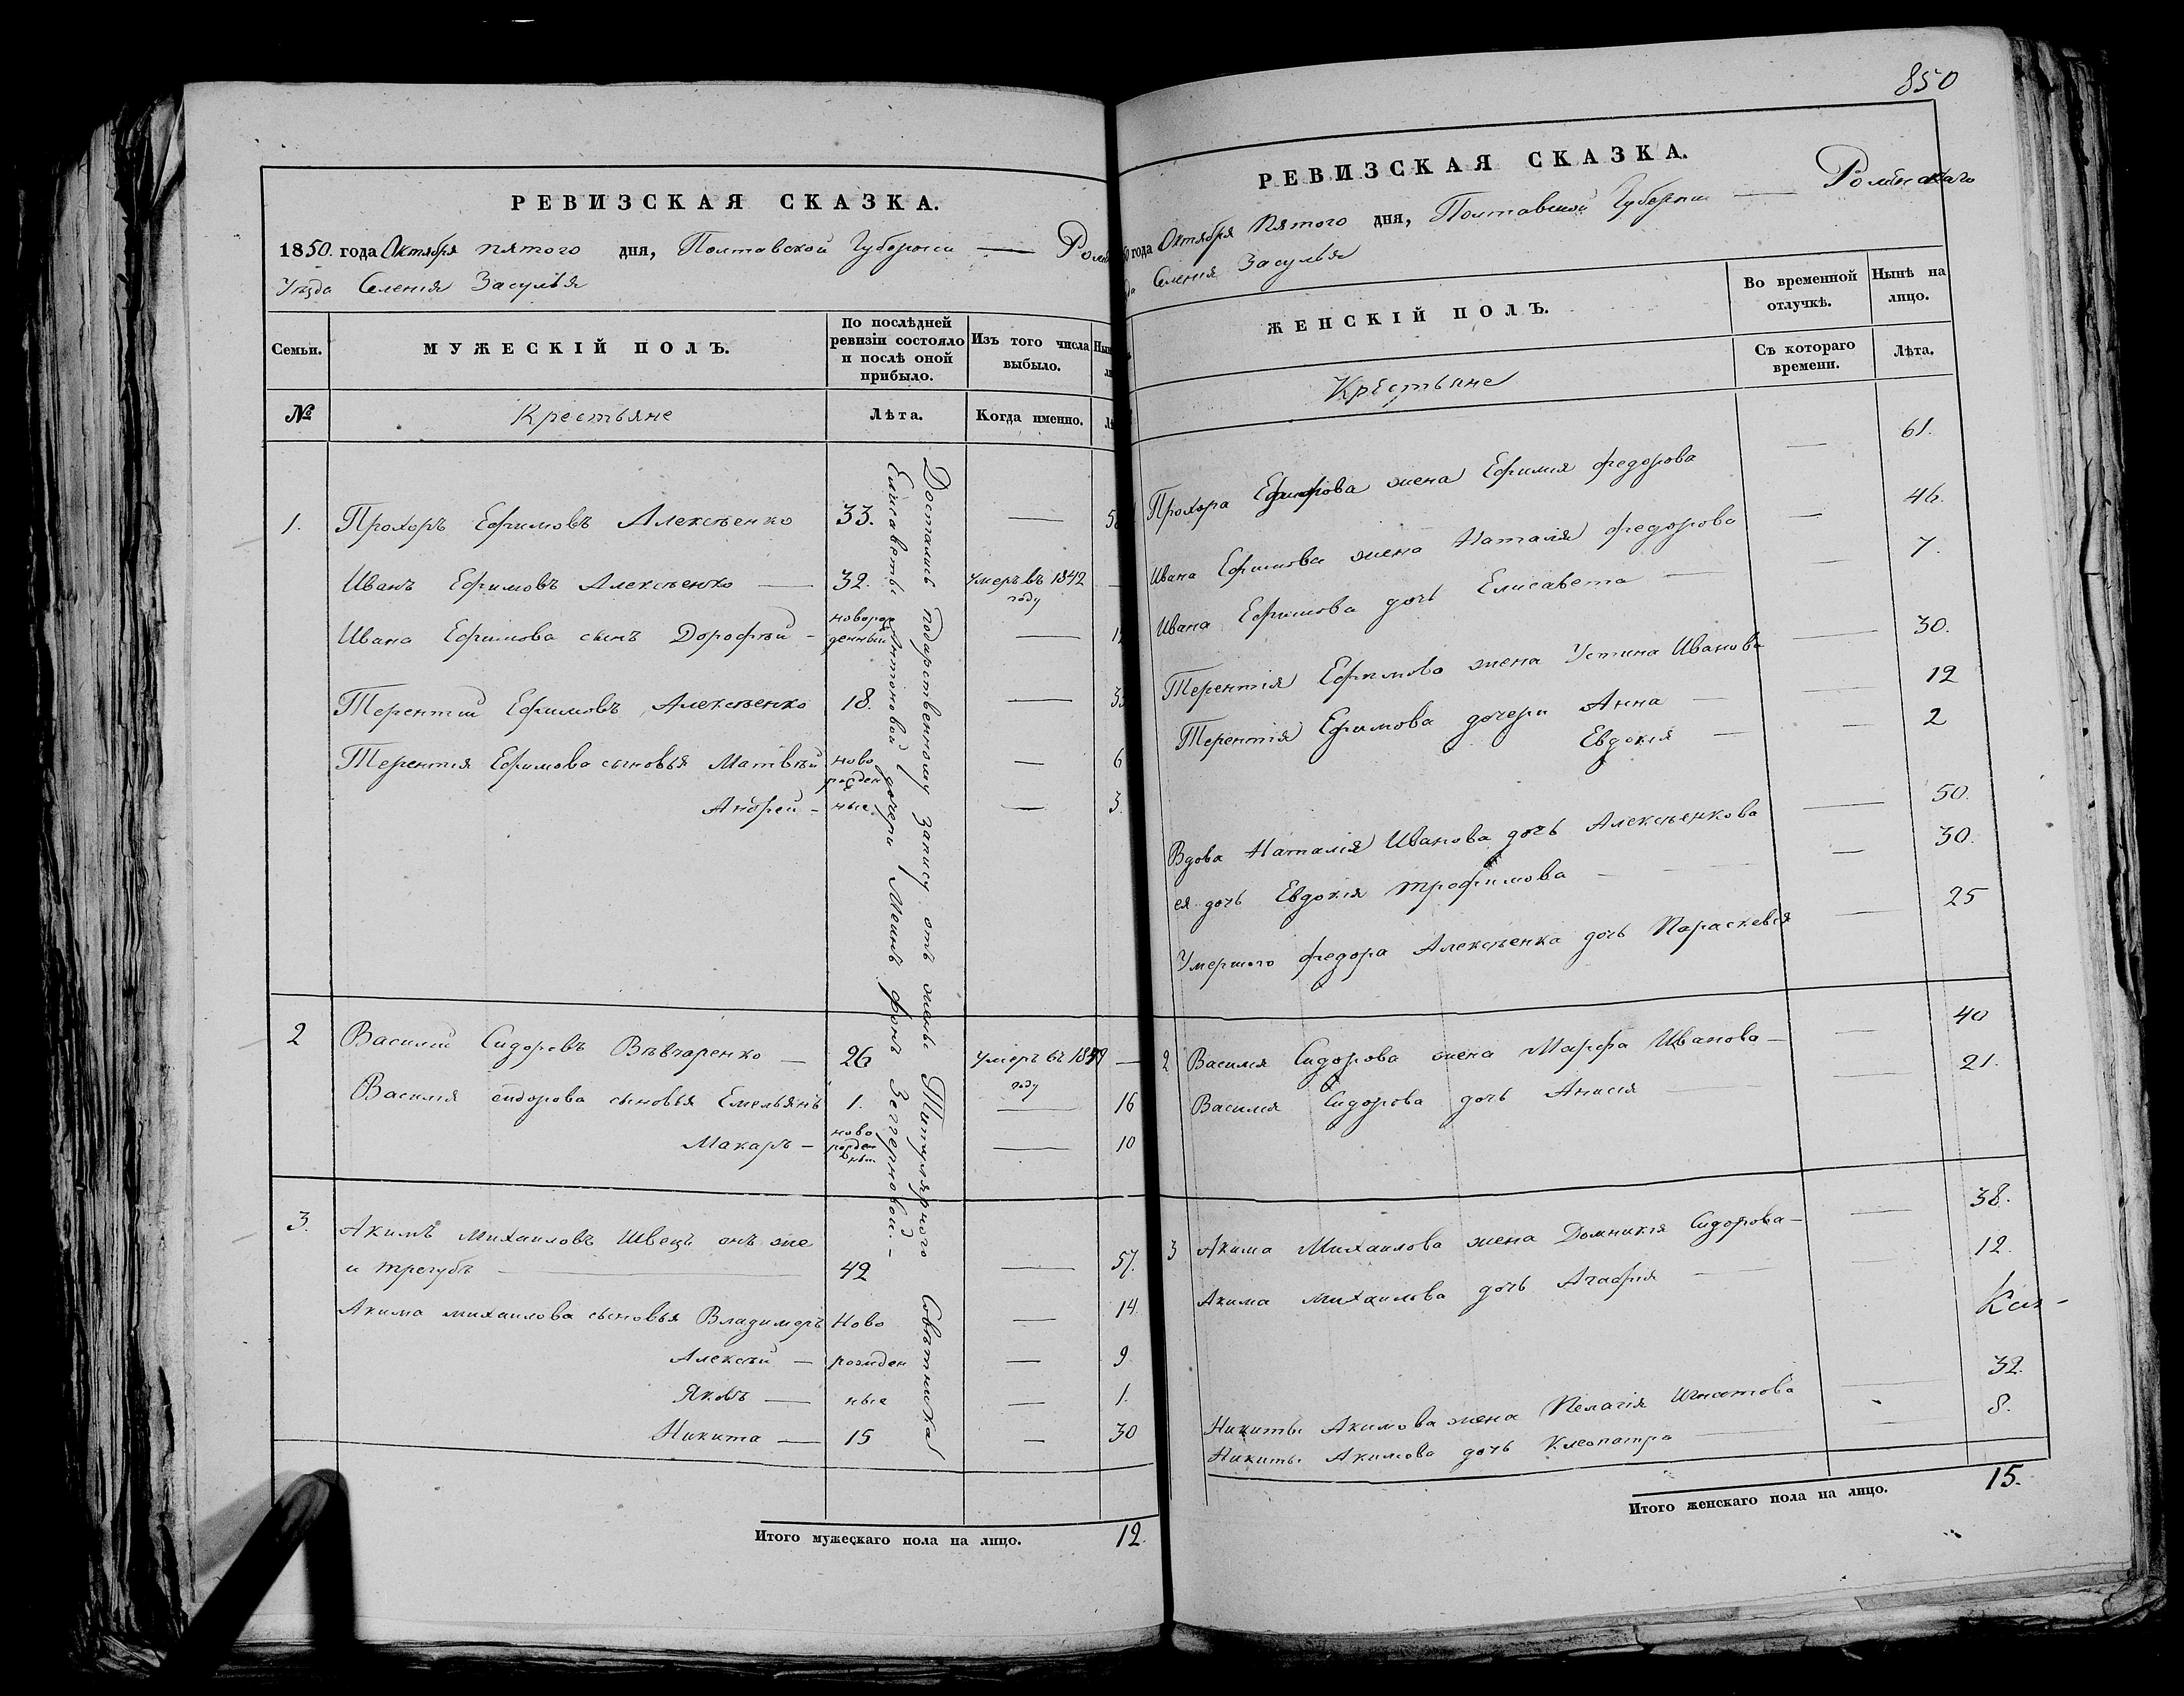 РЕВИЗСКАЯ СКАЗКА.
1850. года Октября пятого дня, Полтавской Губернiи — Ромен
Уѣзда Селенiя Засулья
Семьи.
МУЖЕСКIЙ ПОЛЪ.
По послѣдней ревизiи состояло и послѣ оной прибыло.
Изъ того числа выбыло.
№
Крестьяне
Лѣта.
Когда именно.
1. Прохоръ Ефимовъ Алексѣенко 33. —
Иванъ Ефимовъ Алексѣенко — 32. умеръ въ 1842 году —
Ивана Ефимова сынъ Дорофѣй - новорож денный —
Терентiй Ефимовъ Алексѣенко 18. —
Терентiя Ефимова сыновья Матвѣй ново рожден — 6
Андрей - ные — 3.
2 Василiй Сидоровъ Вѣвчаренко — 26 умеръ въ 1849 году —
Василiя сидорова сыновья Емельянъ 1. — 16
Макаръ — ново рожден ный — 10
3. Акимъ Михаиловъ Швецъ онъ же
и трегубъ — 42 — 57.
Акима михаилова сыновья Владимеръ Ново — 14
Алексѣй — рожден — 9
Яковъ — ные — 1.
Никита — 15 — 30
Итого мужескаго пола на лицо. 12.
Достались подарственному запису отъ жены Титулярного Совѣтника
Елисаветы Антоновой дочери Меинъ фонъ
850
РЕВИЗСКАЯ СКАЗКА.
года Октября Пятого дня, Полтавской Губернiи — Роменскаго
Селенiя Засулья
ЖЕНСКIЙ ПОЛЪ.
Во временной отлучкѣ.
Нынѣ на лицо.
Съ котораго времени.
Лѣта.
Крестьяне
Прохора Ефимова жена Ефимiя федорова — 61.
Ивана Ефимова жена Наталiя федорова — 46.
Ивана Ефимова дочь Елисавета — 7.
Терентiя Ефимова жена Устина Иванова — 30.
Терентiя Ефимова дочери Анна — 12
Евдокiя — 2
Вдова Наталiя Иванова дочь Алексѣенкова — 50.
ея дочь Евдокiя трофимова — 30.
Умершого федора Алексѣенка дочь Параскевiя — 25
2 Василiя Сидорова жена Марфа Иванова — 40
Василiя Сидорова дочь Анисiя — 21.
3 Акима Михаилова жена Домникiя Сидорова — 38.
Акима Михаилова дочь Агафiя — 12.
Никиты Акимова жена Пелагiя Игнатова — 32.
Никиты Акимова дочь Клеопатра — 8.
Итого женскаго пола на лицо. 15.